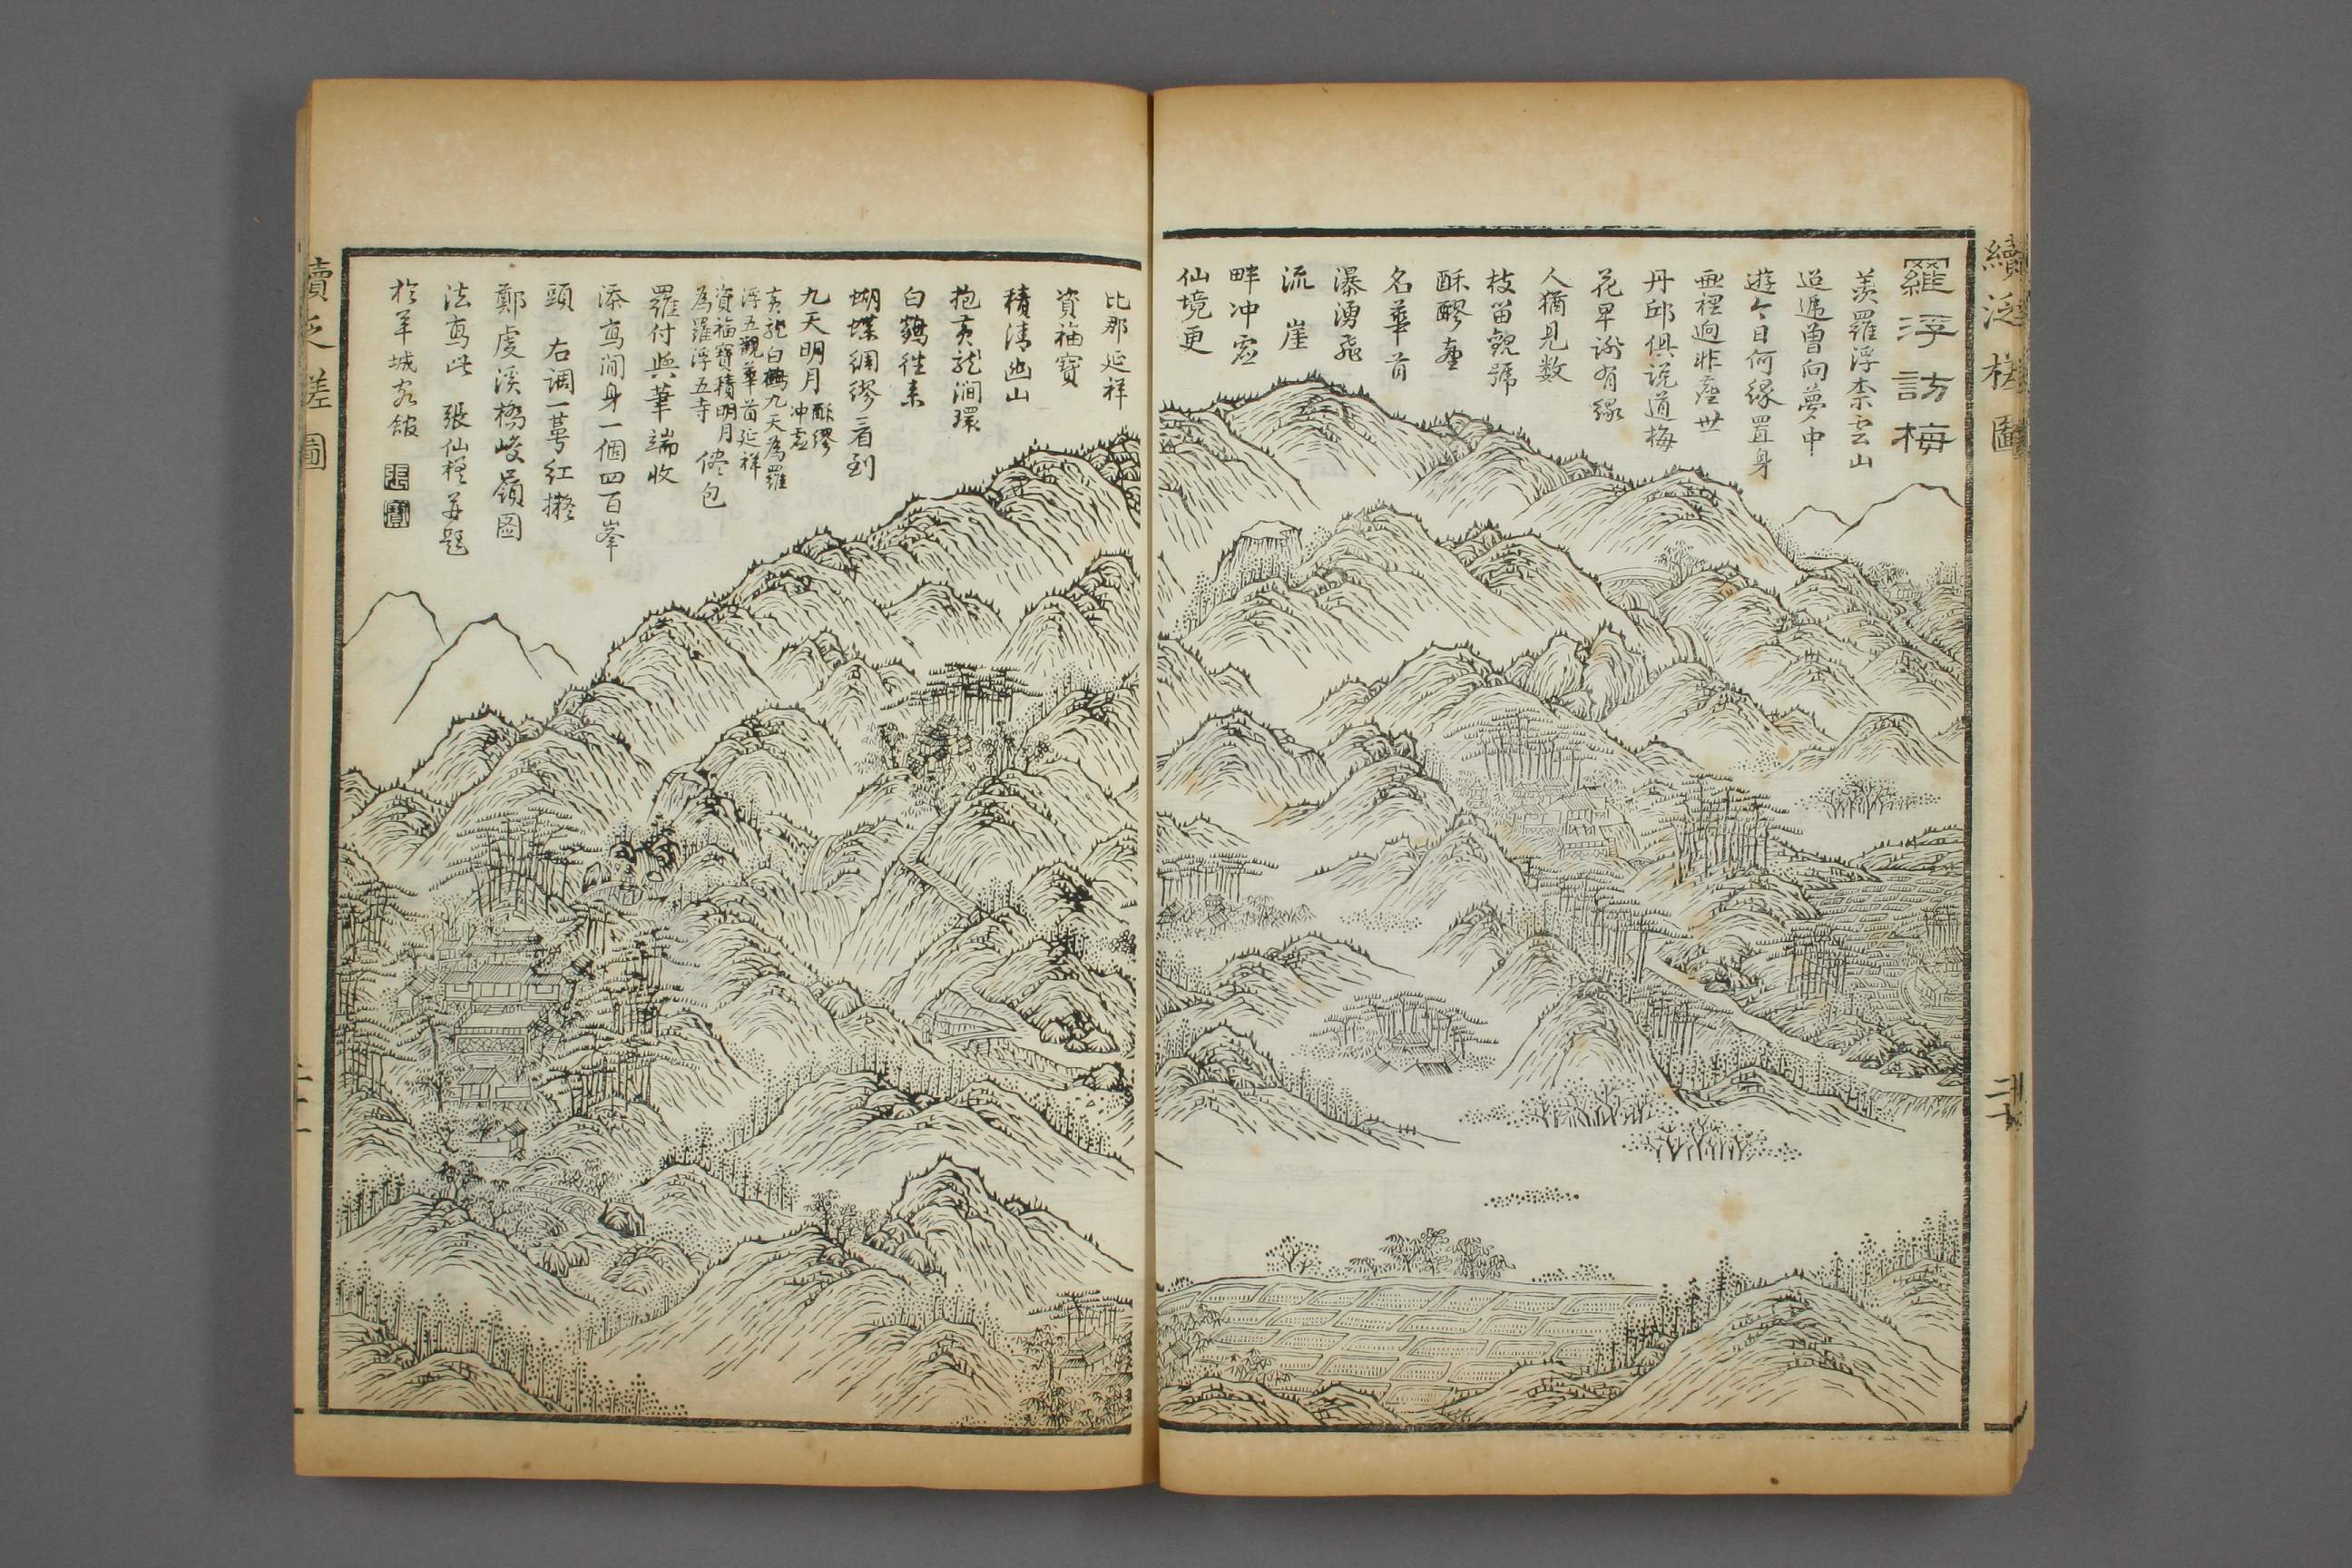 續泛槎圖
羅浮訪梅
羨羅浮奈雲山
迢遞曾向夢中
遊今日何緣置身
無裡迥非塵世
丹邱俱説道梅
花早謝有緣
人猶見数
枝留觀號
酥醪臺
名華首
瀑湧飛
流 崖
畔冲虛
仙境更
比那延祥
資福寶
積清幽山
抱黄龍澗環
白鶴往来
蝴蝶綢繆看到
九天明月
酥醪冲虛
黄龍白鶴九天為羅
浮五觀華首延祥
資福寶積明月
為羅浮五寺
儘包
羅付與筆端收
添寫閒身一個四百峯
頭 右調一萼紅擬
鄭虔溪橋峻嶺圖
法寫此 張仙槎并題
於羊城客館
張
寶
續泛槎圖